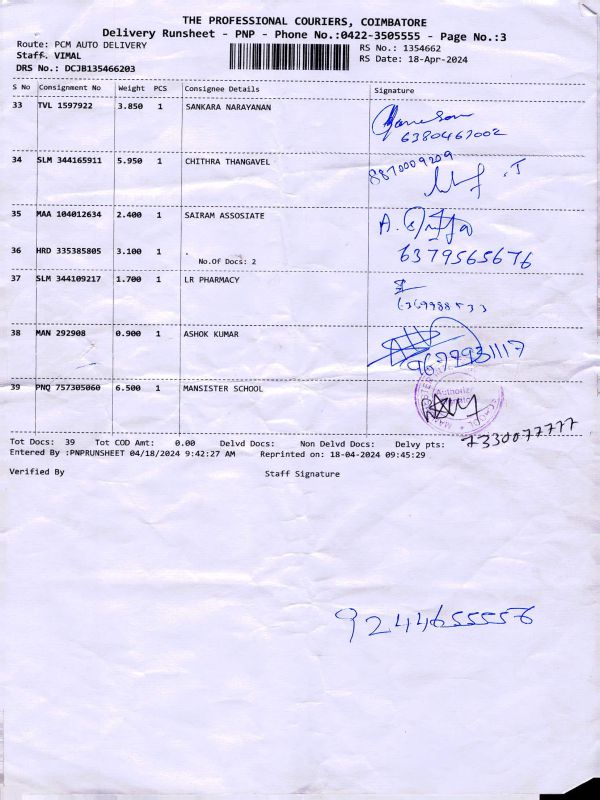 THE PROFESSIONAL COURIERS, COIMBATORE
Delivery Runsheet - PNP - Phone No.:0422-3505555 - Page No.:3
Route: PCM AUTO DELIVERY
RS No.: 1354662
Staff. VIMAL
RS Date: 18-Apr-2024
DRS No.: DCJB135466203
S No Consignment No Weight PCS Consignee Details Signature
33 TVL 1597922 3.850 1 SANKARA NARAYANAN
6380467002
34 SLM 344165911 5.950 1 CHITHRA THANGAVEL
8870009209
35 MAA 104012634 2.400 1 SAIRAM ASSOSIATE
36 HRD 335385805 3.100 1 .
No.Of Docs: 2
6379565676
37 SLM 344109217 1.700 1 LR PHARMACY
38 MAN 292908 0.900 1 ASHOK KUMAR
9677931117
39 PNQ 757305060 6.500 1 MANSISTER SCHOOL
7330077777
Tot Docs: 39 Tot COD Amt: 0.00 Delvd Docs: Non Delvd Docs: Delvy pts:
Entered By :PNPRUNSHEET 04/18/2024 9:42:27 AM Reprinted on: 18-04-2024 09:45:29
Verified By Staff Signature
9244655556